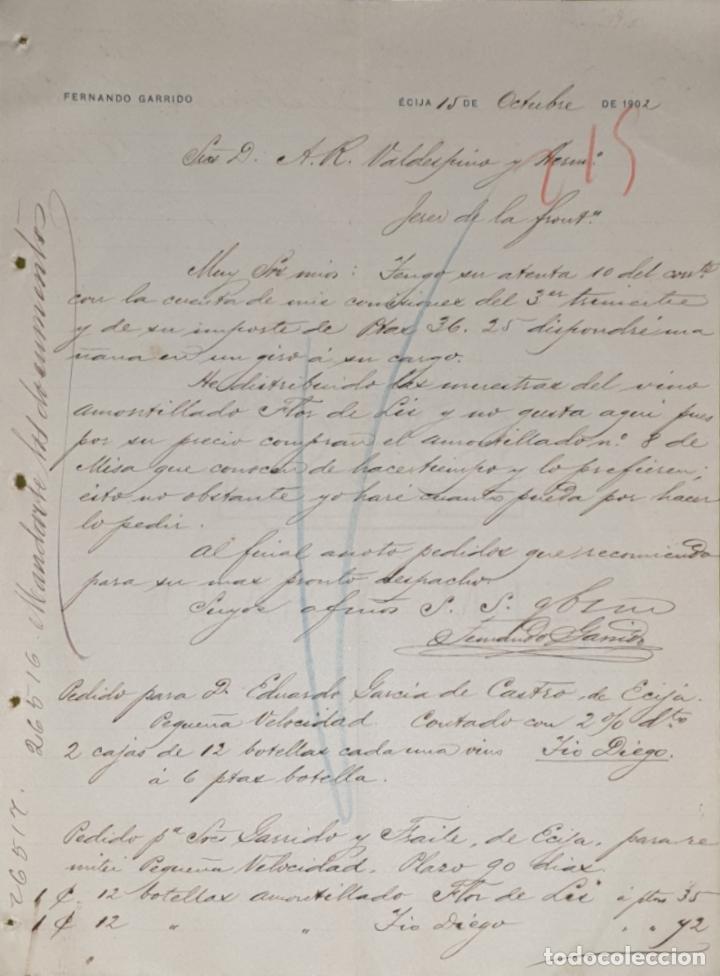 FERNANDO GARRIDO
ÉCIJA 15 DE Octubre DE 1902
215
Sres D. A. R. Valdespino y Herm.º
Jerez de la front.ª
Muy Srs mios: Tengo su atenta 10 del corr.te
con la cuenta de mis comisiones del 3er trimestre
y de su importe de Ptas 36.25 dispondré ma
ñana en un giro á su cargo.
He distribuido las muestras del vino
amontillado Flor de Lis y no gusta aqui pues
por su precio compran el amontillado nº 8 de
Misa que conocen de hace tiempo y lo prefieren;
ésto no obstante yo haré cuanto pueda por hacer
lo pedir.
Al final anoto pedidos que recomiendo
para su mas pronto despacho
Suyos afmos S. S. q b s m
Fernando Garrido
Pedido para D. Eduardo García de Castro, de Ecija.
Pequeña Velocidad Contado con 2% dto
2 cajas de 12 botellas cada una vino Tio Diego.
á 6 ptas botella.
Pedido pª Sres Garrido y Fraile, de Ecija, para re
mitir Pequeña Velocidad. Plazo 90 dias
1 ₵ 12 botellas amontillado Flor de Lis á ptas 35
1 ₵ 12 " " Tio Diego " " 72
"
26517. 26516. Mandarle los documentos
todocoleccion